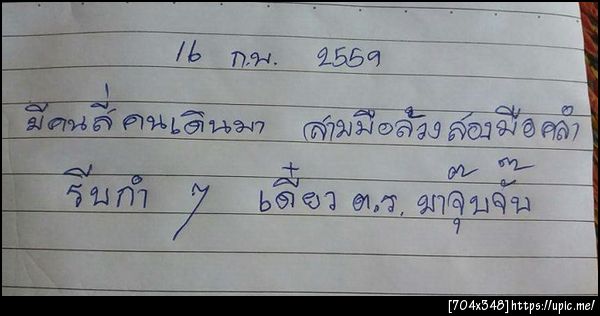 16 ก.พ. 2559
มีคนสี่คนเดินมา สามมือล้วงสองมือคลำ
รีบกำ ๆ เดี๋ยว ต.ร. มาจุ๊บจั๊บ
[704x348]https://upic.me/